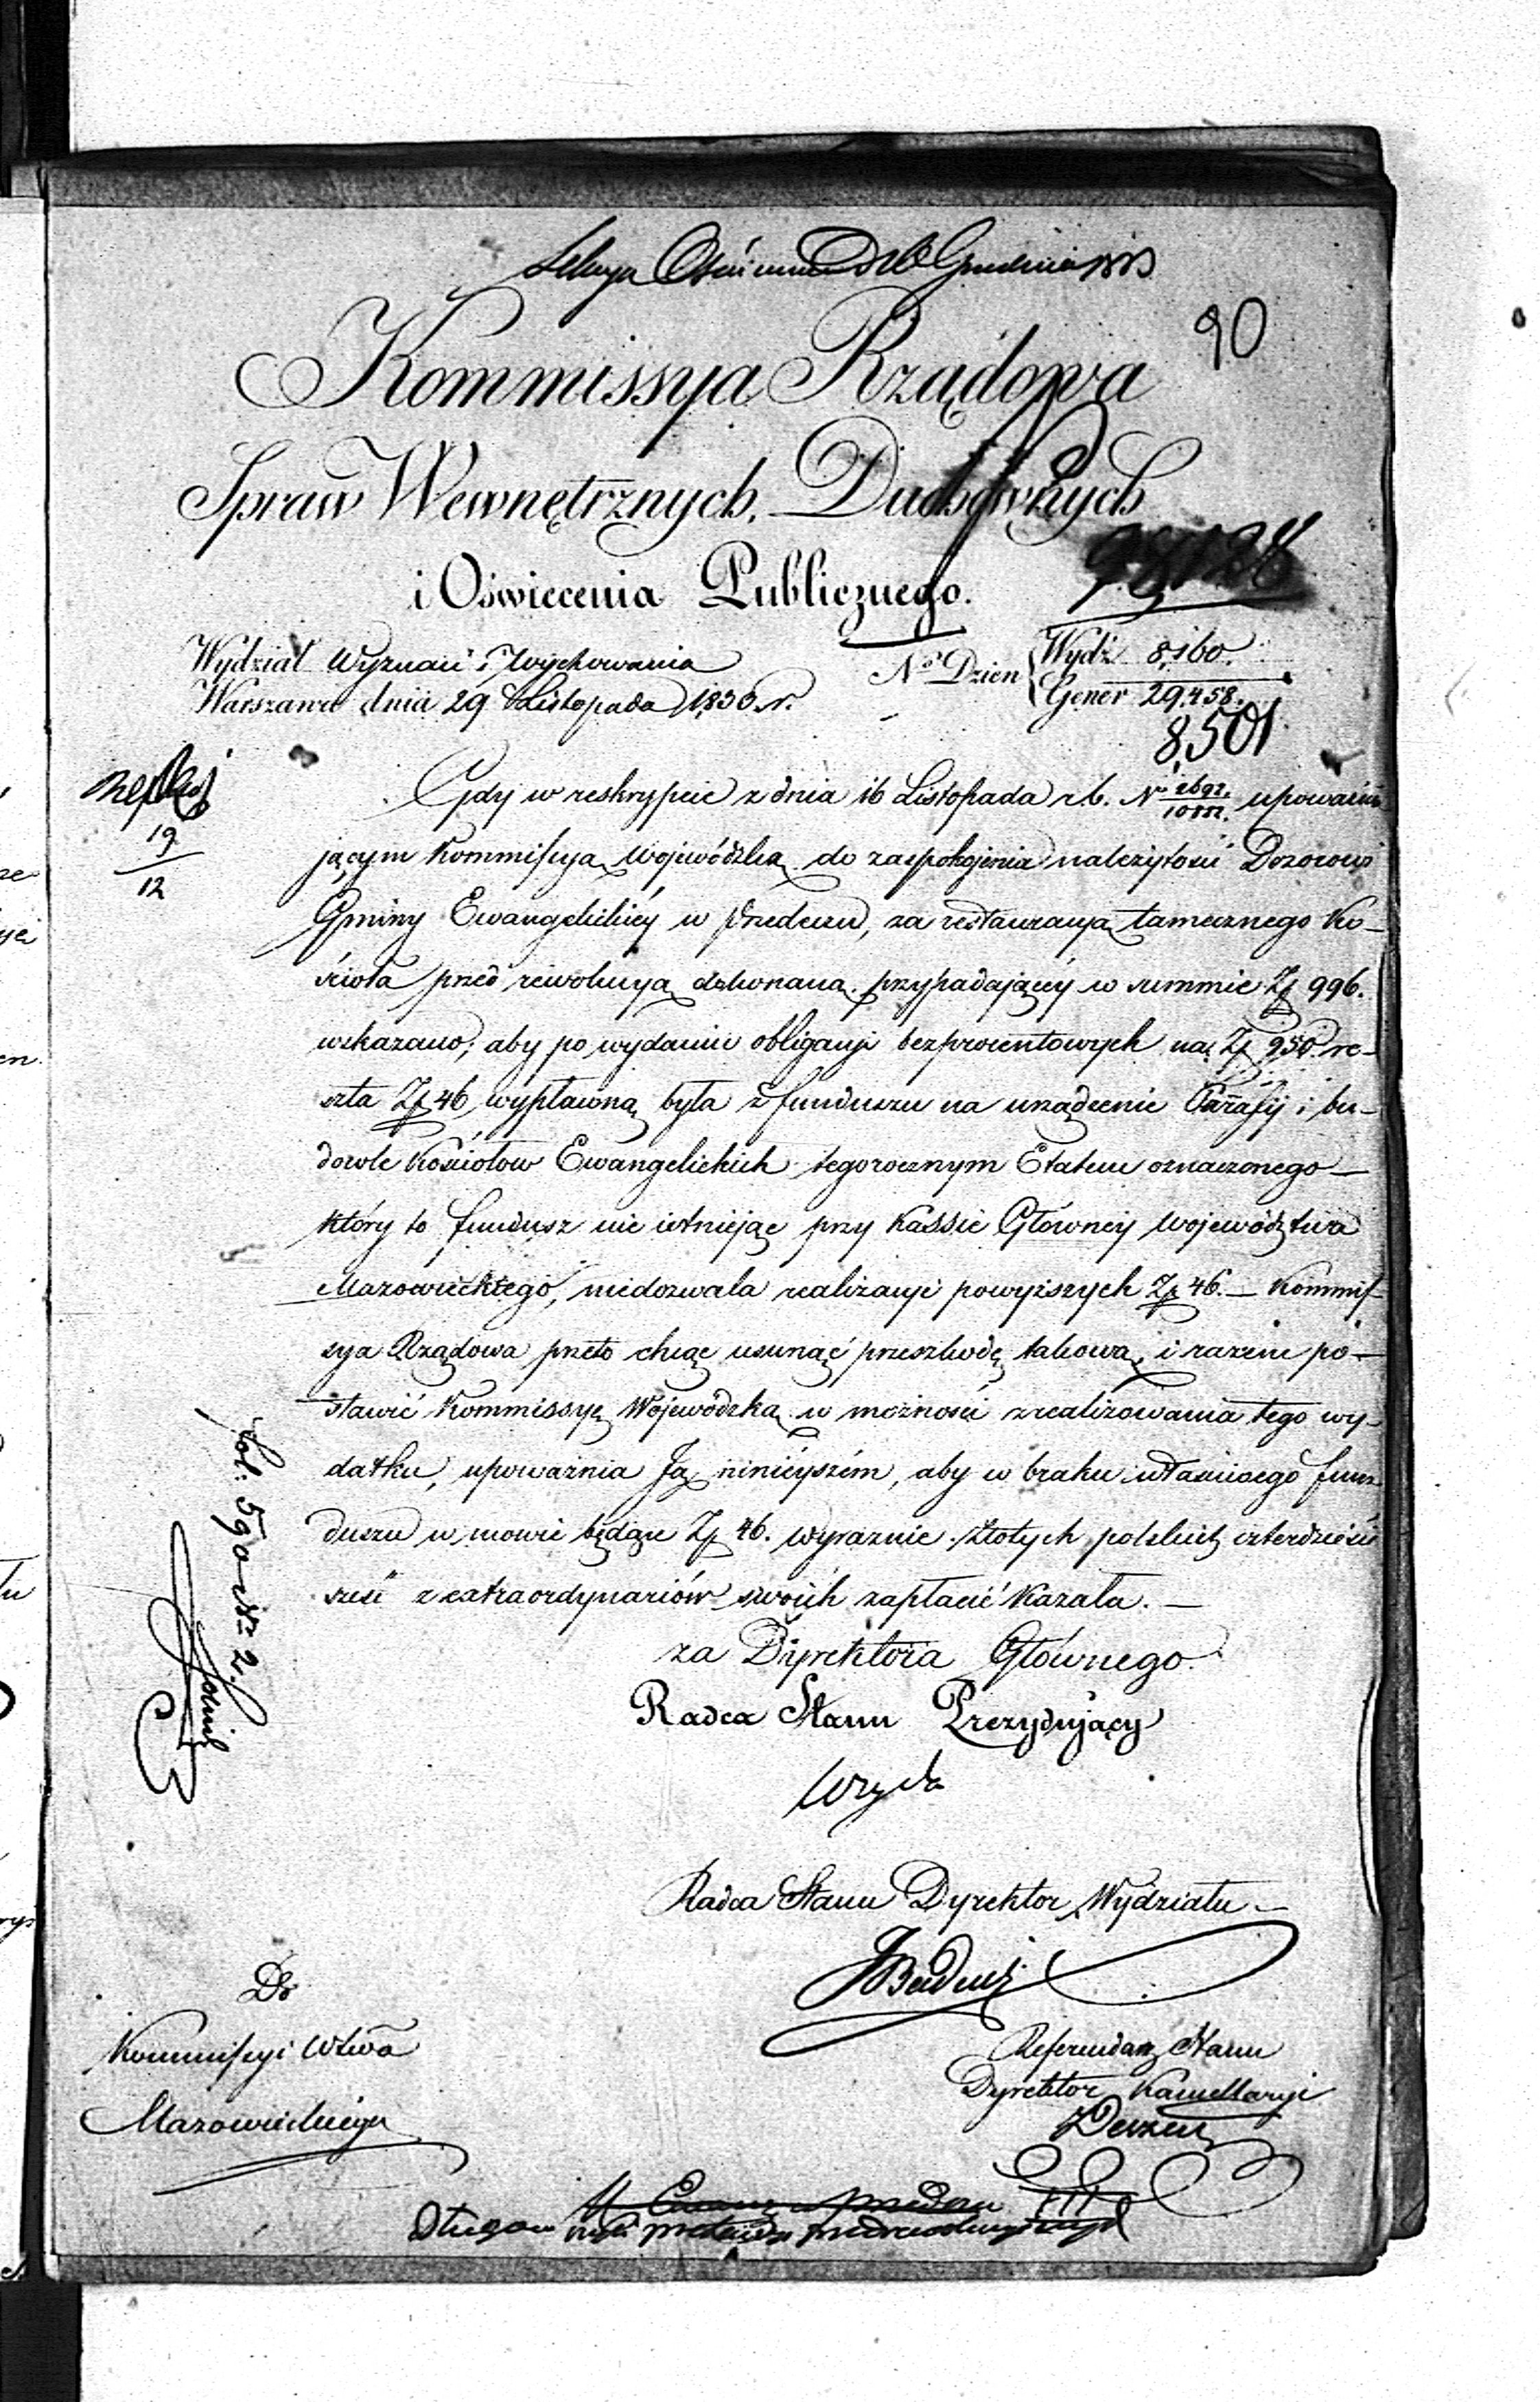 90
Kommissya Rządowa
Spraw Wewnętrznych, Duchownych
i Oświecenia Publicznego.
Wydział Wyznań i Wychowania
Warszawa dnia 29 Listopada 1833 r.
No Dzien Wydz 8,160.
Gener 29.458.
8,501
19
12
Gdy w reskrypcie z dnia 16 Listopada r.b. No upoważnia-
jącym Kommissyą Wojewódzką do zaspokojenia należytości Dozorowi
Gminy Ewangelickiéy w Przedeczu, za restauracyą tamecznego Ko-
ścioła przed rewolucyą dokonaną, przypadającéy w summie Zł 996.
wskazano; aby po wydaniu obligacyi bezprocentowych na Zł 950. re-
szta Zł 46 wypłaconą była z funduszu na urządzenie Parafij i bu-
dowle Kościołow Ewangelickich tegorocznym Etatem oznaczonego —
który to fundusz nie istniejąc przy Kassie Głównéy Województwa
Mazowieckiego, niedozwala realizacyi powyższych Zł 46. — Kommis-
sya Rządowa przeto chcąc usunąć przeszkodę takową, i razem po-
stawić Kommissyę Wojewódzką w możności zrealizowania tego wy-
datku, upoważnia Ją ninieyszém, aby w braku właściwego fun-
duszu w mowie będące Zł 46. wyraznie złotych polskich czterdzieści
sześć z extraordynariów swoich zapłacić kazała. —
za Dyrektora Głównego.
Radca Stanu Prezydujący
Radca Stanu Dyrektor Wydziału —
Referendarz Stanu
Dyrektor Kancellaryi
Do
Kommissyi Wtwa
Mazowieckiego
fol: 590 No 2.